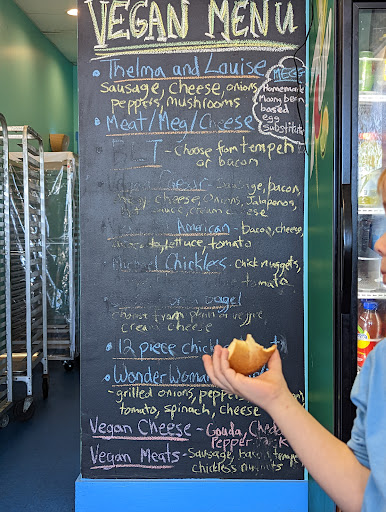 VEGAN MENU
• Thelma and Louise
Sausage, cheese, onions,
peppers, mushrooms
MEEG
Homemade
Moong bean
based
egg
substitute
• Meat/Meg/Cheese
BLT - Choose from tempeh
or bacon
- Sausage, bacon,
cheese, onions, Jalaponos,
sauce, cream cheese
American - bacon, cheese,
lettuce, tomato
Michael Chickless chick nuggets,
tomato
bagel
choose from plain or veggie
cream cheese
• 12 piece
• Wonder Woman
- grilled onions, peppers,
tomato, spinach, cheese
Vegan Cheese - Gouda,
Pepper
Vegan Meats - Sausage, bacon,
chickless nuggets